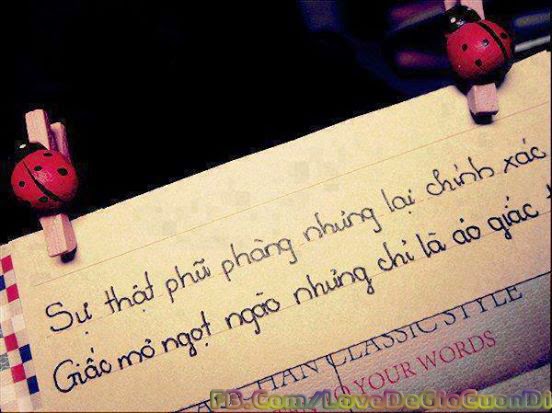 Sự thật phũ phàng nhưng lại chính xác
Giấc mơ ngọt ngào nhưng chỉ là ảo giác
CLASSIC STYLE
YOUR WORDS
FB.Com/LoveDeGioCuonDi